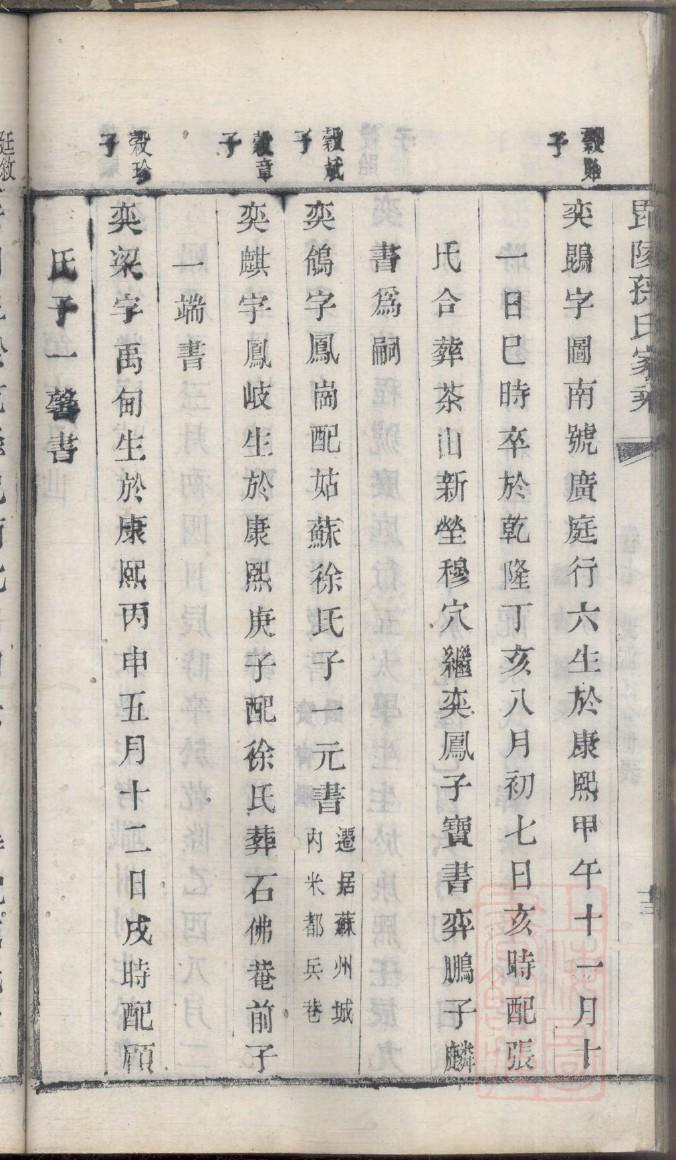 毘陵孫氏家乘
十三
穀貽子
奕鶠字圖南號廣庭行六生於康熙甲午十一月十
一日巳時卒於乾隆丁亥八月初七日亥時配張
氏合葬茶山新塋穆穴繼奕鳳子寶書弈鵬子麟
書為嗣
穀斌子
奕鴿字鳳崗配姑蘇徐氏子一元書遷居蘇州城
內米都兵巷
穀章子
奕麒字鳳岐生於康熙庚子配徐氏葬石佛菴前子
一端書
穀珍子
奕梁字禹甸生於康熙丙申五月十二日戌時配顧
氏子一馨書
廷敘